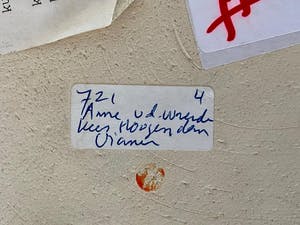 721 4
Anne v.d. Woerde
Kees Hoogendam
Vianen